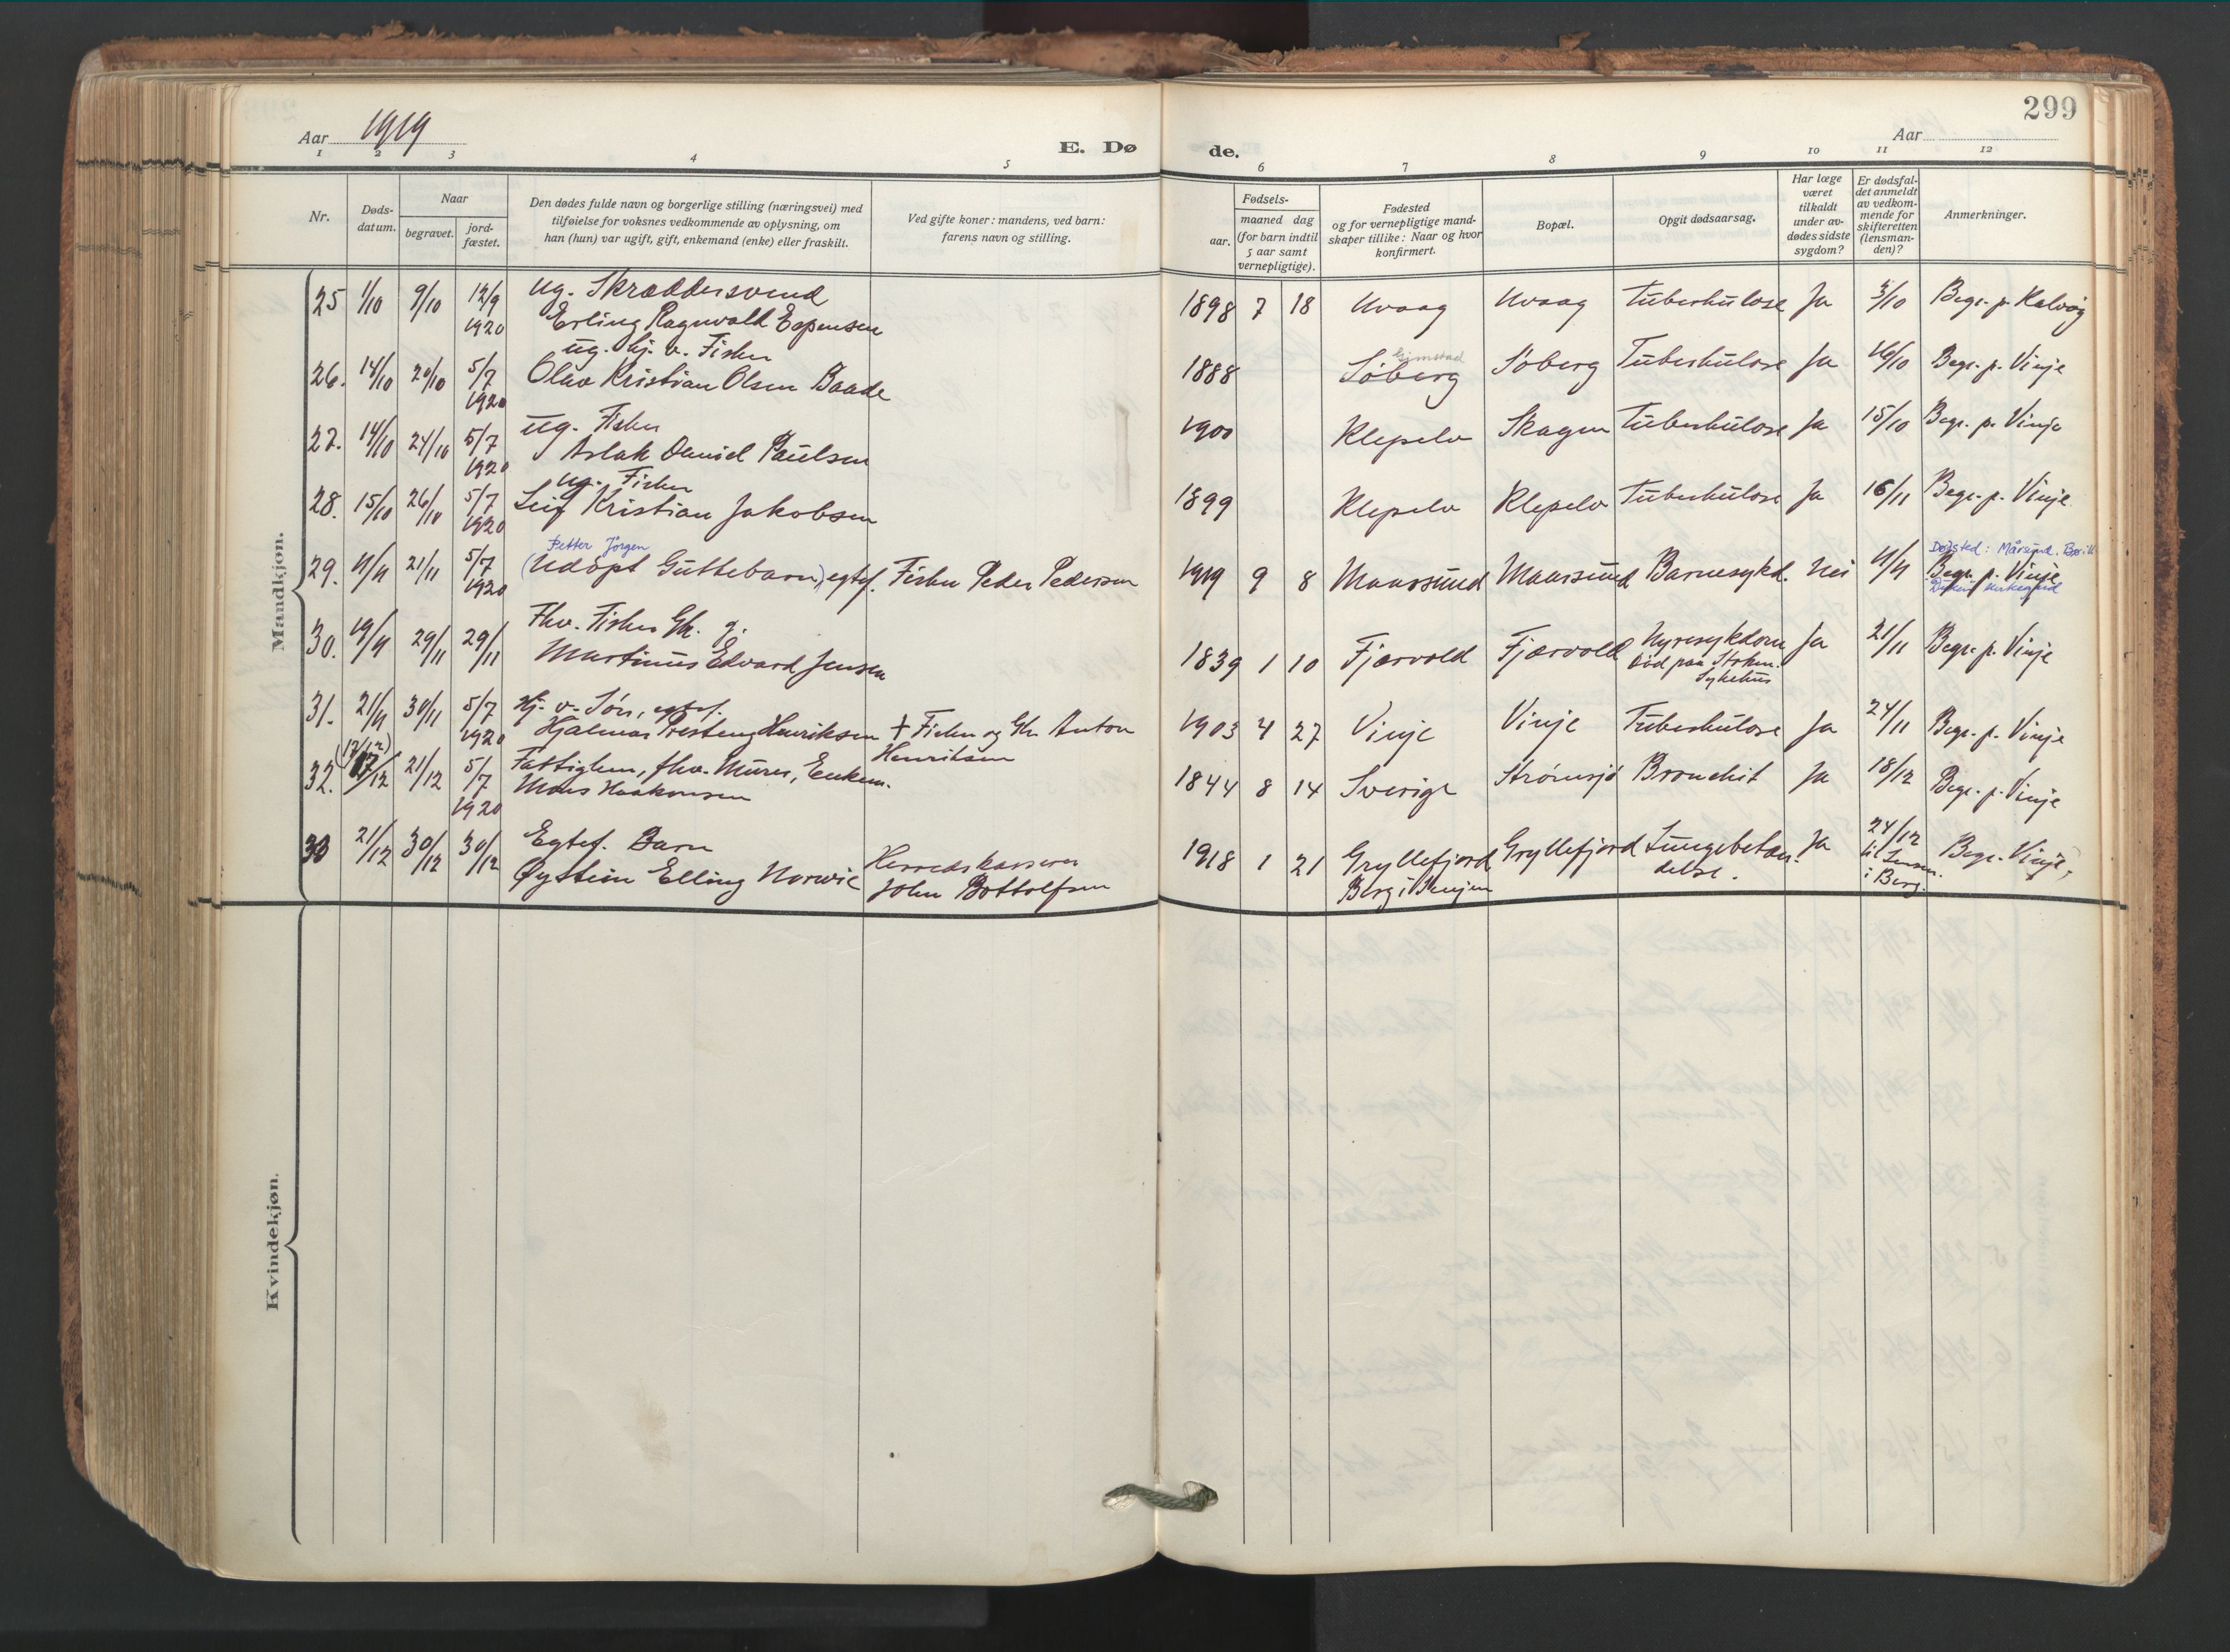 299
Aar 1919
E. Dø
de.
Aar
1 2 3 4 5 6 7 8 9 10 11 12
Nr.
Døds-
datum.
Naar
begravet.
jord-
fæstet.
Den dødes fulde navn og borgerlige stilling (næringsvei) med
tilføielse for voksnes vedkommende av oplysning, om
han (hun) var ugift, gift, enkemand (enke) eller fraskilt.
Ved gifte koner: mandens, ved barn:
farens navn og stilling.
Fødsels-
aar.
maaned dag
(for barn indtil
5 aar samt
vernepligtige).
Fødested
og for vernepligtige mand-
skaper tillike: Naar og hvor
konfirmert.
Bopæl.
Opgit dødsaarsag.
Har læge
været
tilkaldt
under av-
dødes sidste
sygdom?
Er dødsfal-
det anmeldt
av vedkom-
mende for
skifteretten
(lensman-
den)?
Anmerkninger.
Mandkjøn.
25 1/10 9/10 12/9 1920
ug. Skræddersvend
Erling Ragnvald Espensen
1898 7 18 Uvaag Uvaag Tuberkulose Ja 3/10 Begr. p. Kalvåg
26. 14/10 20/10 5/7 1920
ug. hj. v. Fisker
Olav Kristian Olsen Baade
1888 Søberg Søberg Tuberkulose Ja 16/10 Begr. p. Vinje
Gimstad
27. 14/10 24/10 5/7 1920
ug. Fisker
Aslak Daniel Paulsen
1900 Klepelv Skagen Tuberkulose Ja 15/10 Begr. p. Vinje
28. 15/10 26/10 5/7 1920
ug. Fisker
Leif Kristian Jakobsen
1899 Klepelv Klepelv Tuberkulose Ja 16/11 Begr. p. Vinje
29. 11/11 21/11 5/7 1920
Petter Jørgen
(Udøpt Guttebarn), egtef. Fisker Peder Pedersen
1919 9 8 Maarsund Maarsund Barnesykd. Nei 11/11 Begr. p. Vinje
Dødsted: Mårsund.
kirkegård
30. 19/11 29/11 29/11
Fhv. Fisker Gbr. g.
Martinus Edvard Jensen
1839 1 10 Fjærvold Fjærvold Nyresykdom Ja 21/11 Begr. p. Vinje
Død paa Stokm.
Sykehus
31. 21/11 30/11 5/7 1920
Hj. v. Søn, egtef.
Hjalmar Presteng Henriksen + Fisker og Gbr Anton
Henriksen
1903 4 27 Vinje Vinje Tuberkulose Ja 24/11 Begr. p. Vinje
(17/12)
32. 17/12 21/12 5/7 1920
Fattiglem, fhv. Murer, Enkem.
Mons Haakonsen
1844 8 14 Sverige Strømsjø Bronchit Ja 18/12 Begr. p. Vinje
33 21/12 30/12 30/12
Egtef. Barn
Øystein Elling Norvic
Herredskasserer
John Bottolfsen
1918 1 21 Gryllefjord Gryllefjord Lungebetæn- Ja 24/12 Begr. Vinje
Berg i Senjen
delse.
til Lensm.
i Berg.
Kvindekjøn.